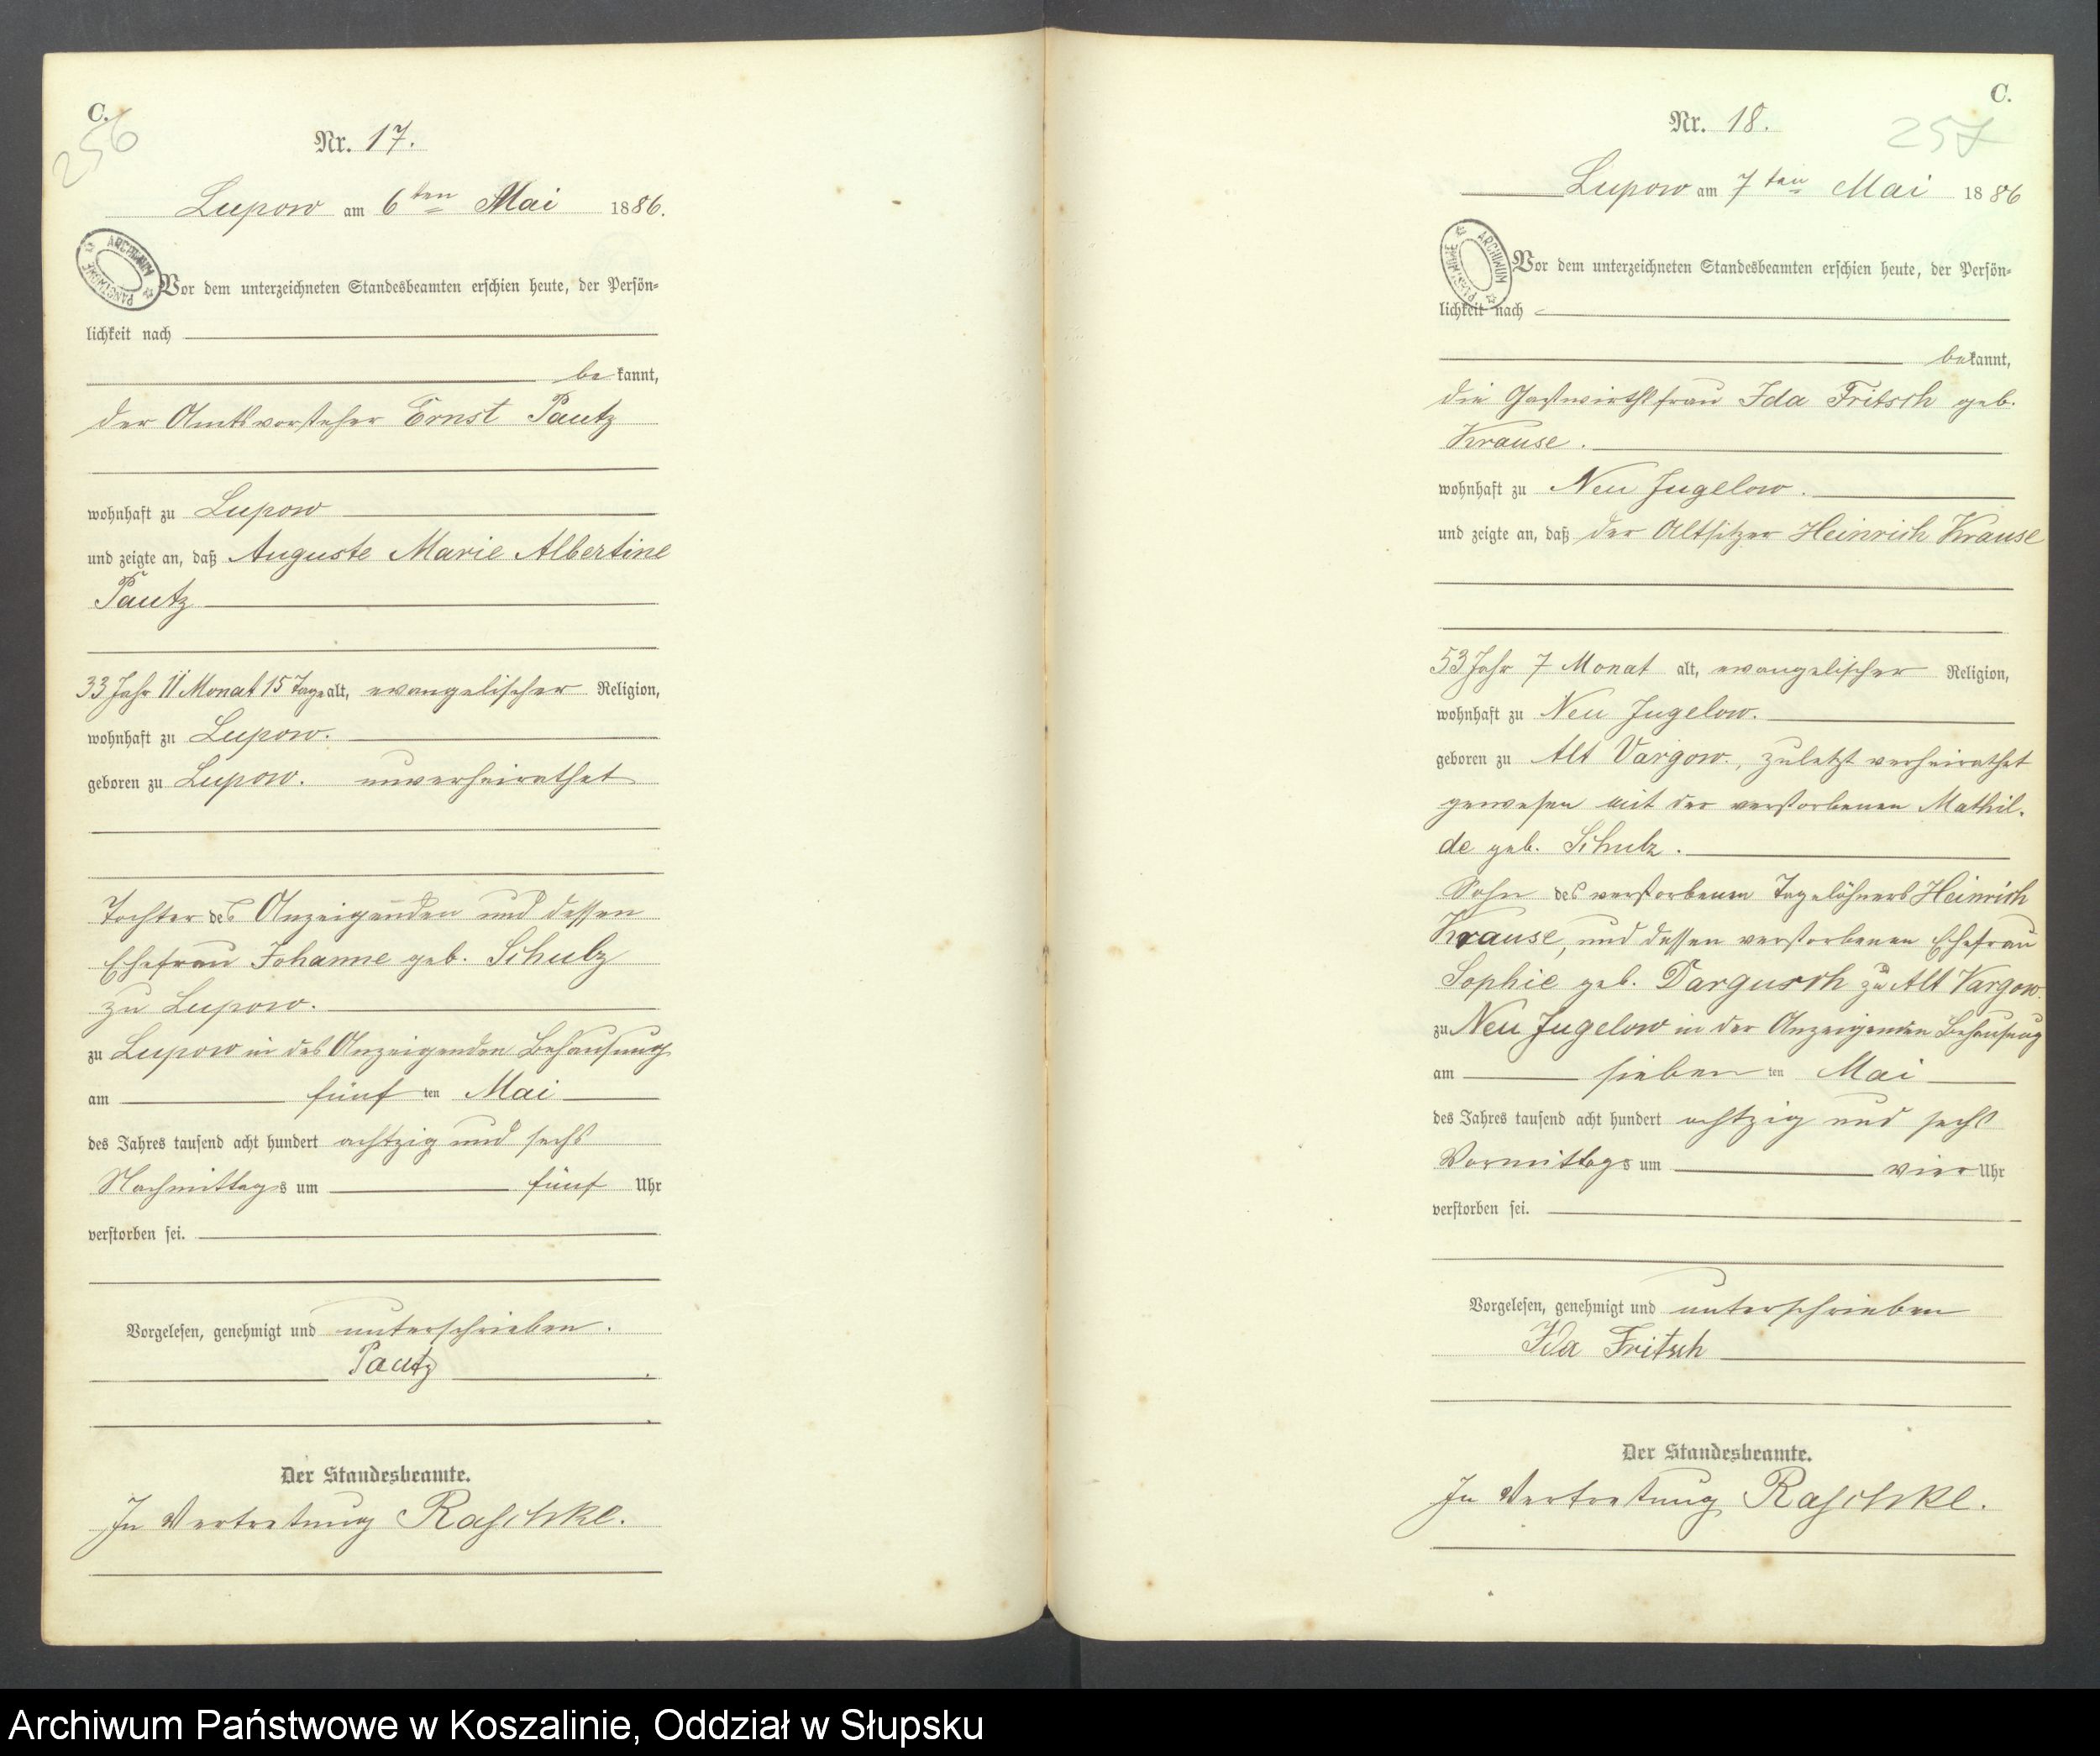 C.
256
Nr. 17.
Lupow am 6ten Mai 1886.
ARCHIWUM PAŃSTWOWE
Vor dem unterzeichneten Standesbeamten erschien heute, der Persön-
lichkeit nach
bekannt,
der Amtsvorsteher Ernst Pautz
wohnhaft zu Lupow
und zeigte an, daß Auguste Marie Albertine
Pautz
33 Jahr 11 Monat 15 Tage alt, evangelischer Religion,
wohnhaft zu Lupow.
geboren zu Lupow. unverheirathet
Tochter des Anzeigenden und dessen
Ehefrau Johanne geb. Schulz
zu Lupow.
zu Lupow in des Anzeigenden Behausung
am fünften Mai
des Jahres tausend acht hundert achtzig und sechs
Nachmittags um fünf Uhr
verstorben sei.
Vorgelesen, genehmigt und unterschrieben.
Pautz
Der Standesbeamte.
In Vertretung Raschke.
C.
257
Nr. 18.
Lupow am 7ten Mai 1886
ARCHIWUM PAŃSTWOWE
Vor dem unterzeichneten Standesbeamten erschien heute, der Persön-
lichkeit nach
bekannt,
die Gastwirthsfrau Ida Fritsch geb.
Krause.
wohnhaft zu Neu Jugelow.
und zeigte an, daß der Altsitzer Heinrich Krause
53 Jahr 7 Monat alt, evangelischer Religion,
wohnhaft zu Neu Jugelow.
geboren zu Alt Vargow., zuletzt verheirathet
gewesen mit der verstorbenen Mathil-
de geb. Schulz.
Sohn des verstorbenen Tagelöhners Heinrich
Krause, und dessen verstorbenen Ehefrau
Sophie geb. Dargusch zu Alt Vargow.
zu Neu Jugelow in der Anzeigenden Behausung
am siebenten Mai
des Jahres tausend acht hundert achtzig und sechs
Vormittags um vier Uhr
verstorben sei.
Vorgelesen, genehmigt und unterschrieben
Ida Fritsch
Der Standesbeamte.
In Vertretung Raschke.
Archiwum Państwowe w Koszalinie, Oddział w Słupsku